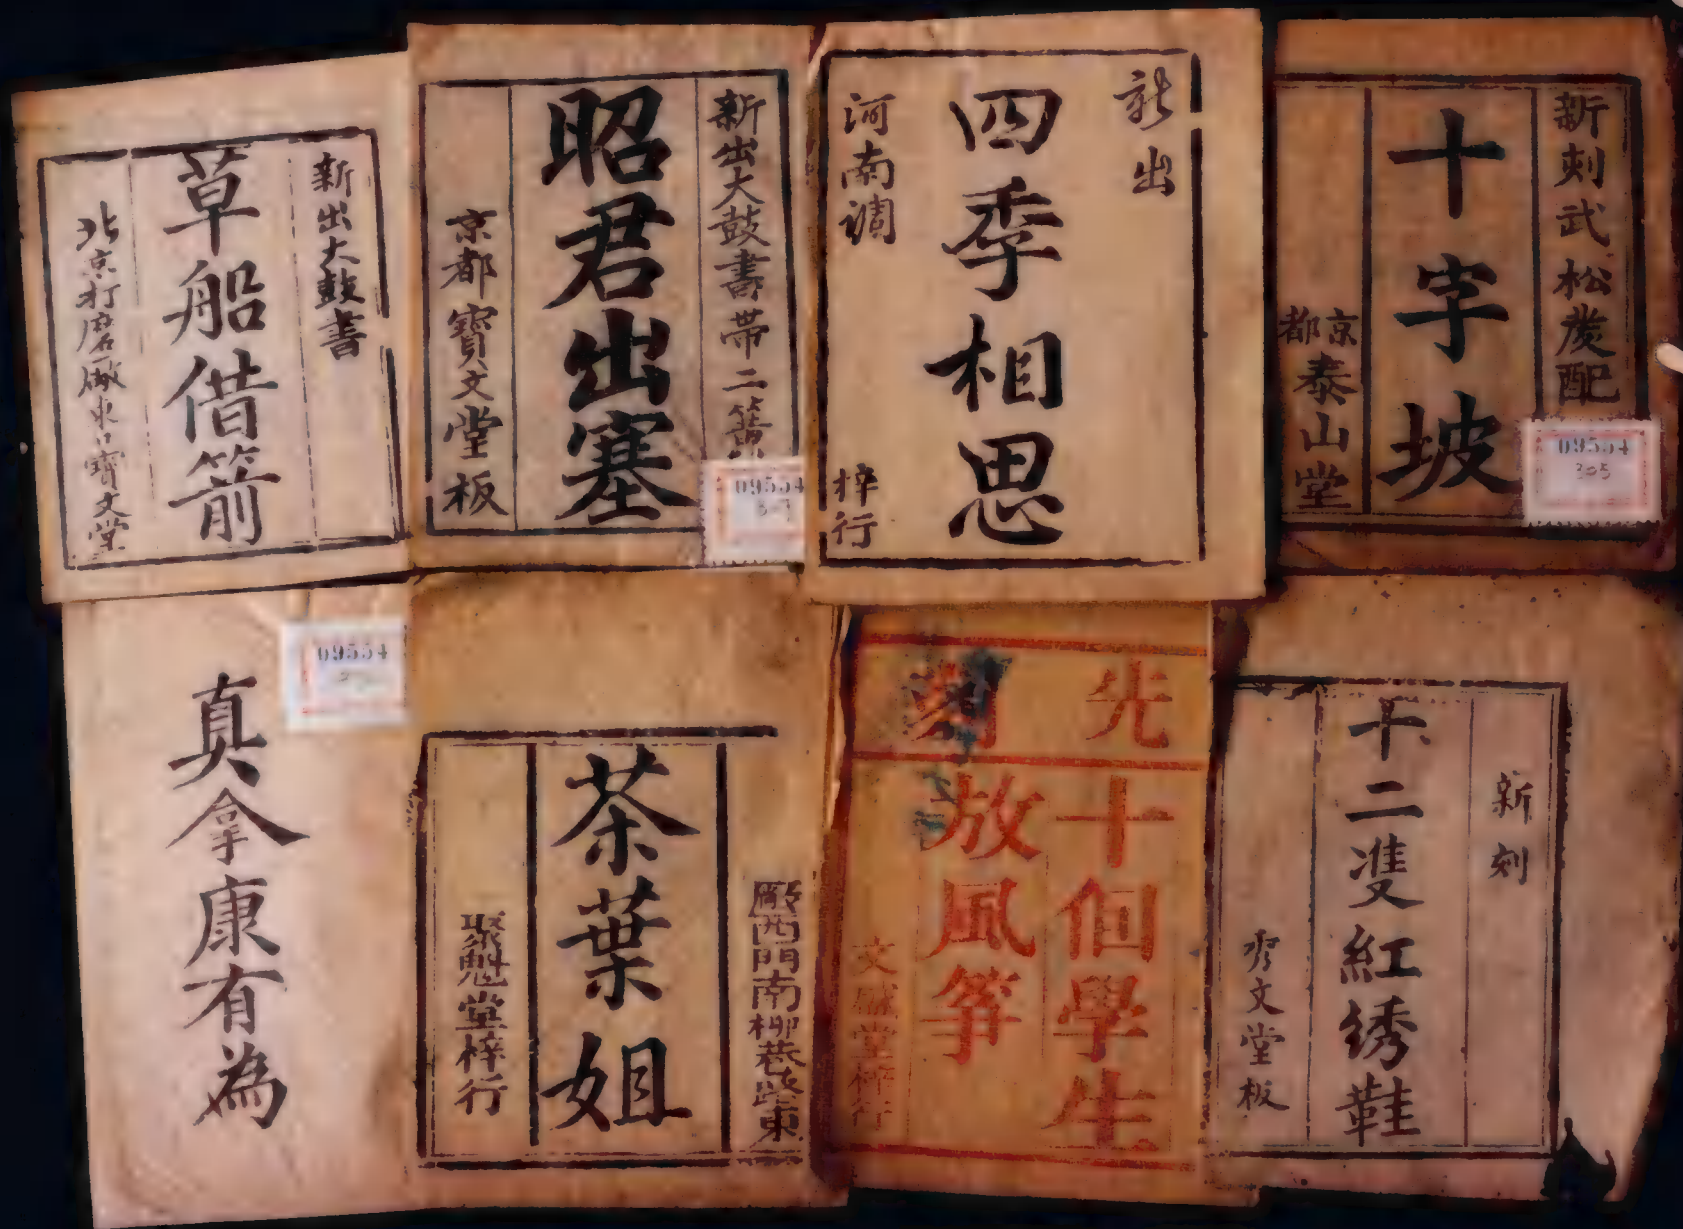 新出大鼓書
草船借箭
北京打磨廠東口寶文堂
新出大鼓書帶二簧
昭君出塞
京都寶文堂板
09554
新出
四季相思
河南調
梓行
新刻武松發配
十字坡
京都
泰山堂
09554
305
09554
真拿康有為
殿西門南柳巷路東
茶葉姐
聚魁堂梓行
先刻
十個學生
放風箏
文盛堂梓行
新刻
十二雙紅绣鞋
秀文堂板